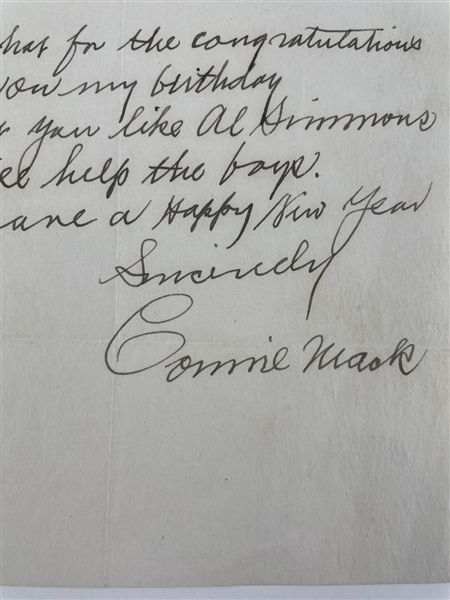 for the congratulations
my birthday
you like Al Simmons
help the boys.
a Happy New Year
Sincerely
Connie Mack